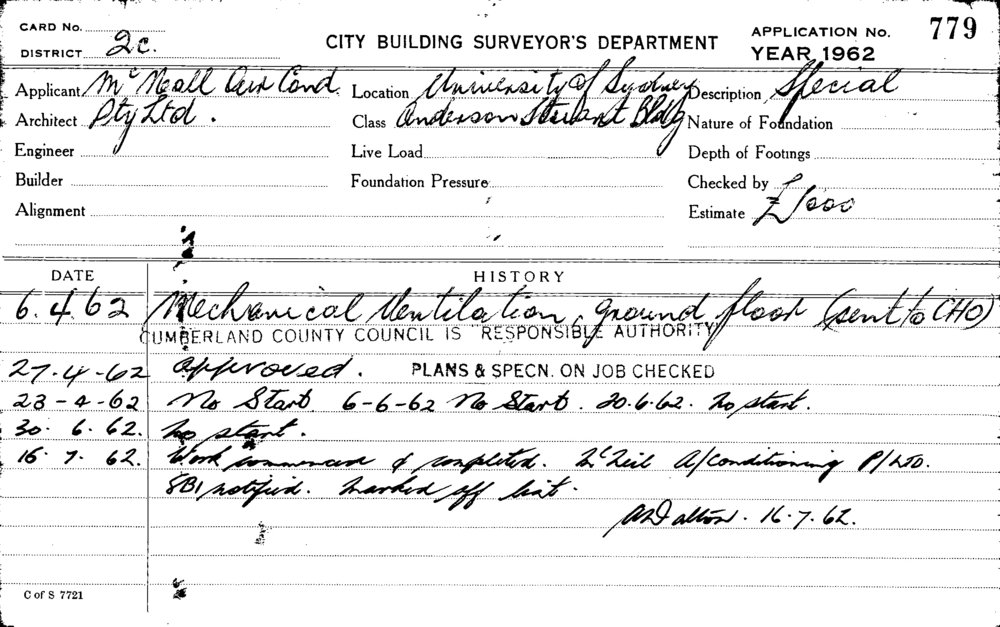 CARD No.
DISTRICT 2c.
CITY BUILDING SURVEYOR'S DEPARTMENT
APPLICATION No. 779
YEAR 1962
Applicant McNeall Air Cond Location University of Sydney Description Special
Architect Pty Ltd. Class Anderson Stuart Bldg Nature of Foundation
Engineer Live Load Depth of Footings
Builder Foundation Pressure Checked by
Alignment Estimate £1000
DATE HISTORY
6.4.62 Mechanical Ventilation, ground floor (sent to CHO)
CUMBERLAND COUNTY COUNCIL IS "RESPONSIBLE AUTHORITY"
27-4-62 Approved. PLANS & SPECN. ON JOB CHECKED
23-4-62 No Start. 6-6-62 No Start. 20.6.62. No start.
30. 6.62. No start.
16. 7. 62. Work commenced & completed. McNeil A/Conditioning P/LTD.
SBI notified. Marked off list.
Dalton. 16.7.62.
C of S 7721